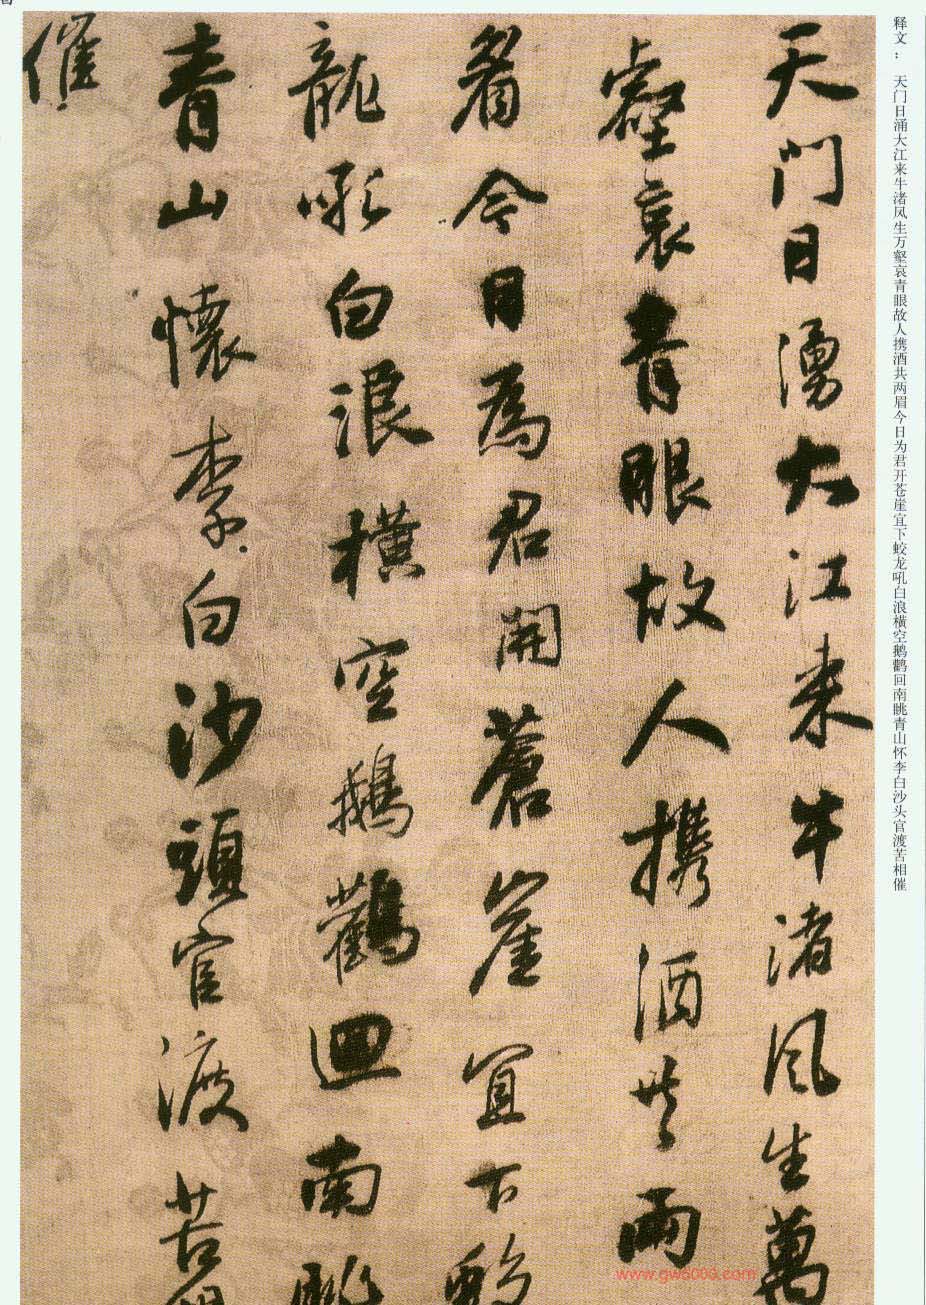 释文： 天门日涌大江来牛渚风生万壑哀青眼故人携酒共两眉今日为君开苍崖宜下蛟龙吼白浪横空鹅鹳回南眺青山怀李白沙头官渡苦相催
天門日湧大江来牛渚风生萬
壑哀青眼故人携酒共兩
眉今日為君開蒼崖宜下蛟
龍吼白浪横空鵝鸛迴南眺
青山懷李白沙頭官渡苦相
催
www.gw5000.com